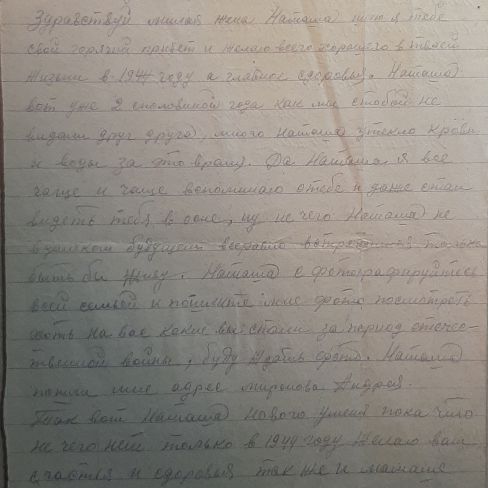 Здравствуй милая жена Наташа шлю я тебе
свой горячий привет и желаю всего хорошего в твоей
жизни в 1944 году а главное здоровья. Наташа
вот уже 2 споловиной года как мы стобой не
видали друг друга, много Наташа утекло крови
и воды за это время. Да Наташа я все
чаще и чаще вспоминаю отебе и даже стал
видеть тебя в осне, ну не чего Наташа не
вдалеком будущем всеравно встретимся только
быть бы живу. Наташа с фотографируйтесь
всей семьей и пошлите мне фото посмотреть
хоть на вас какие вы стали за период отечес-
твенной войны, буду ждать фото. Наташа
пошли мне адрес миронова Андрея.
Так вот Наташа нового уменя пока что
не чего нет только в 1944 году желаю вам
счастья и здоровья так же и мамаше